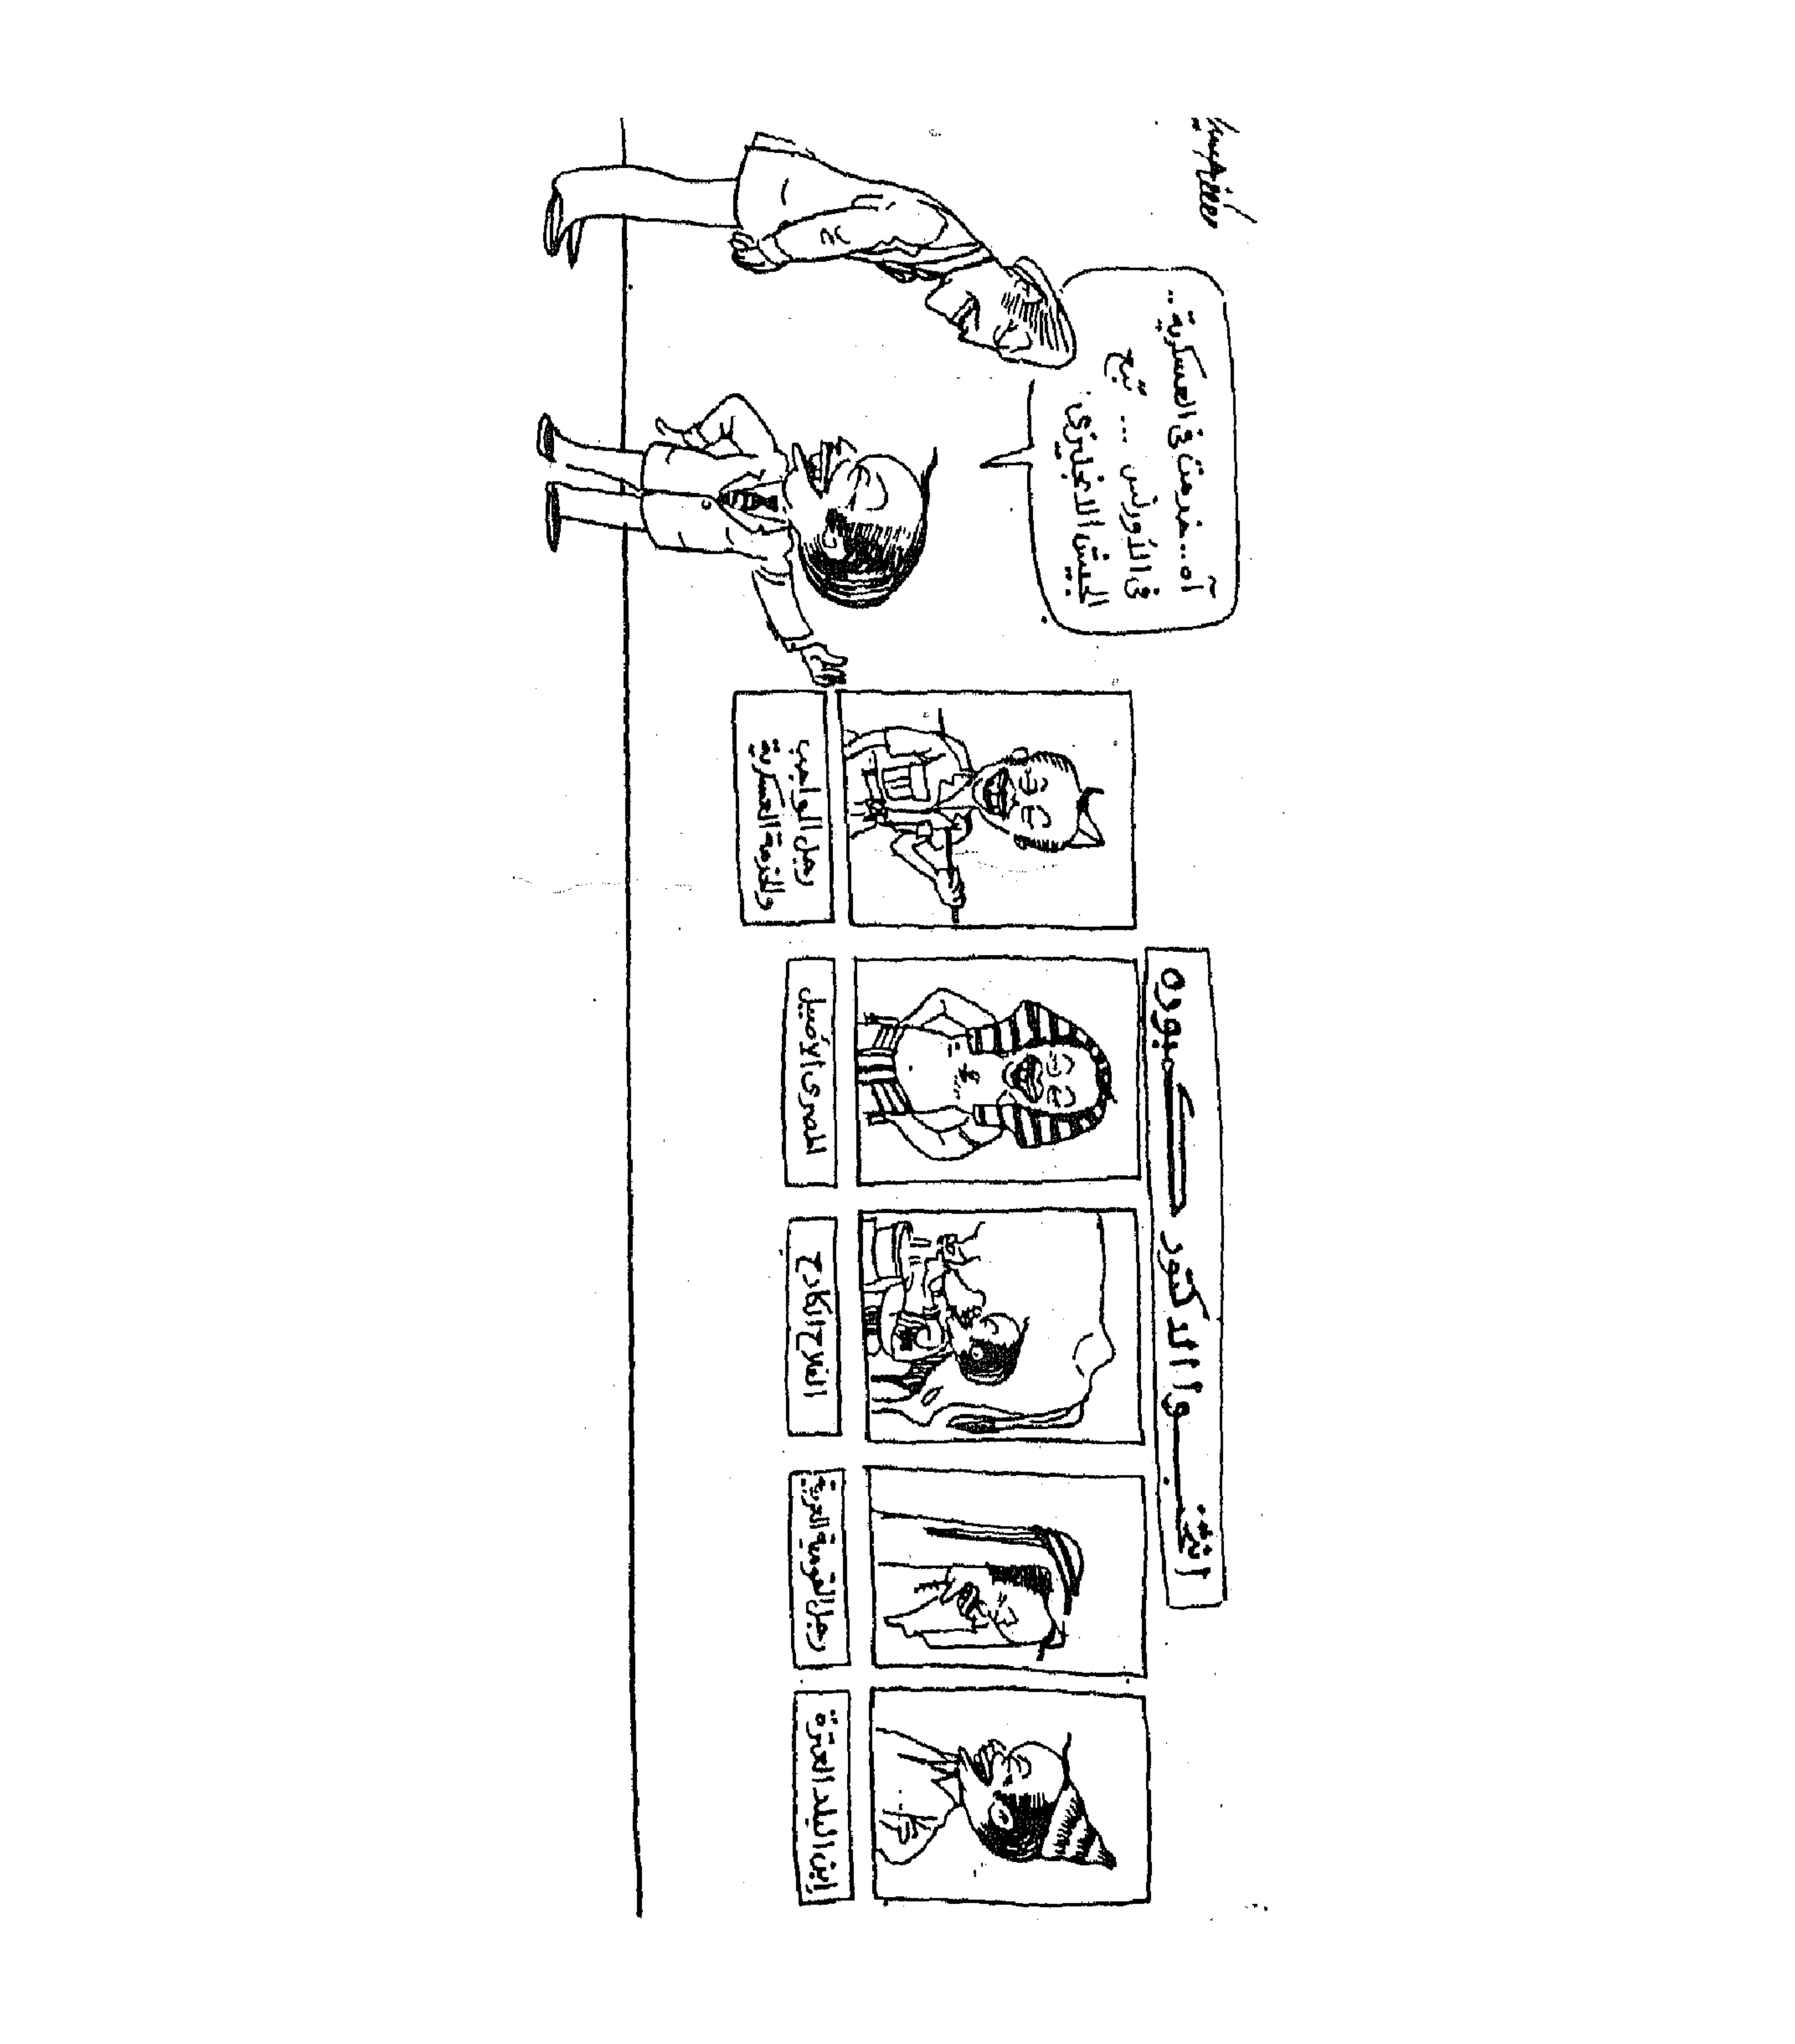 انتخبوا الدكتور كبوره
إبن البلد العترة
رجل القومية العربية
الفلاح الكادح
المصرى الأصيل
رجل الواجب
والخدمة العسكرية
آه .. خدمت فى العسكرية ..
فى الأورنس ... تبع
الجيش الانجليزى